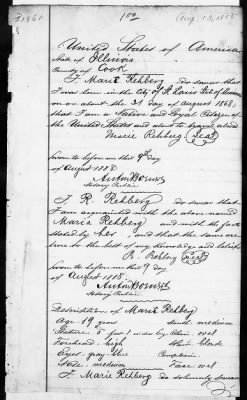 100
Aug. 13, 1885
United States of America
State of Illinois
County of Cook
I, Marie Rehberg do swear that
I was born in the City of St. Louis State of Missouri
on or about the 31 day of August 1868;
that I am a Native and Loyal Citizen of
the United States and about to travel abroad
Marie Rehberg Seal
Sworn to before me this 9th day
of August 1888
Notary Public
I, R. Rehberg do swear that
I am acquainted with the above named
Marie Rehberg and with the facts
stated by her and that the same are
true to the best of my knowledge and belief
R. Rehberg Seal
Sworn to before me this 9 day
of August 1888.
Notary Public
Description of Marie Rehberg
Age 19 years mouth medium
Stature 5 feet 1 inches Chin oval
Forehead high Hair blonde
Eyes gray blue Complexion
Nose medium Face oval
I, Marie Rehberg do solemnly swear